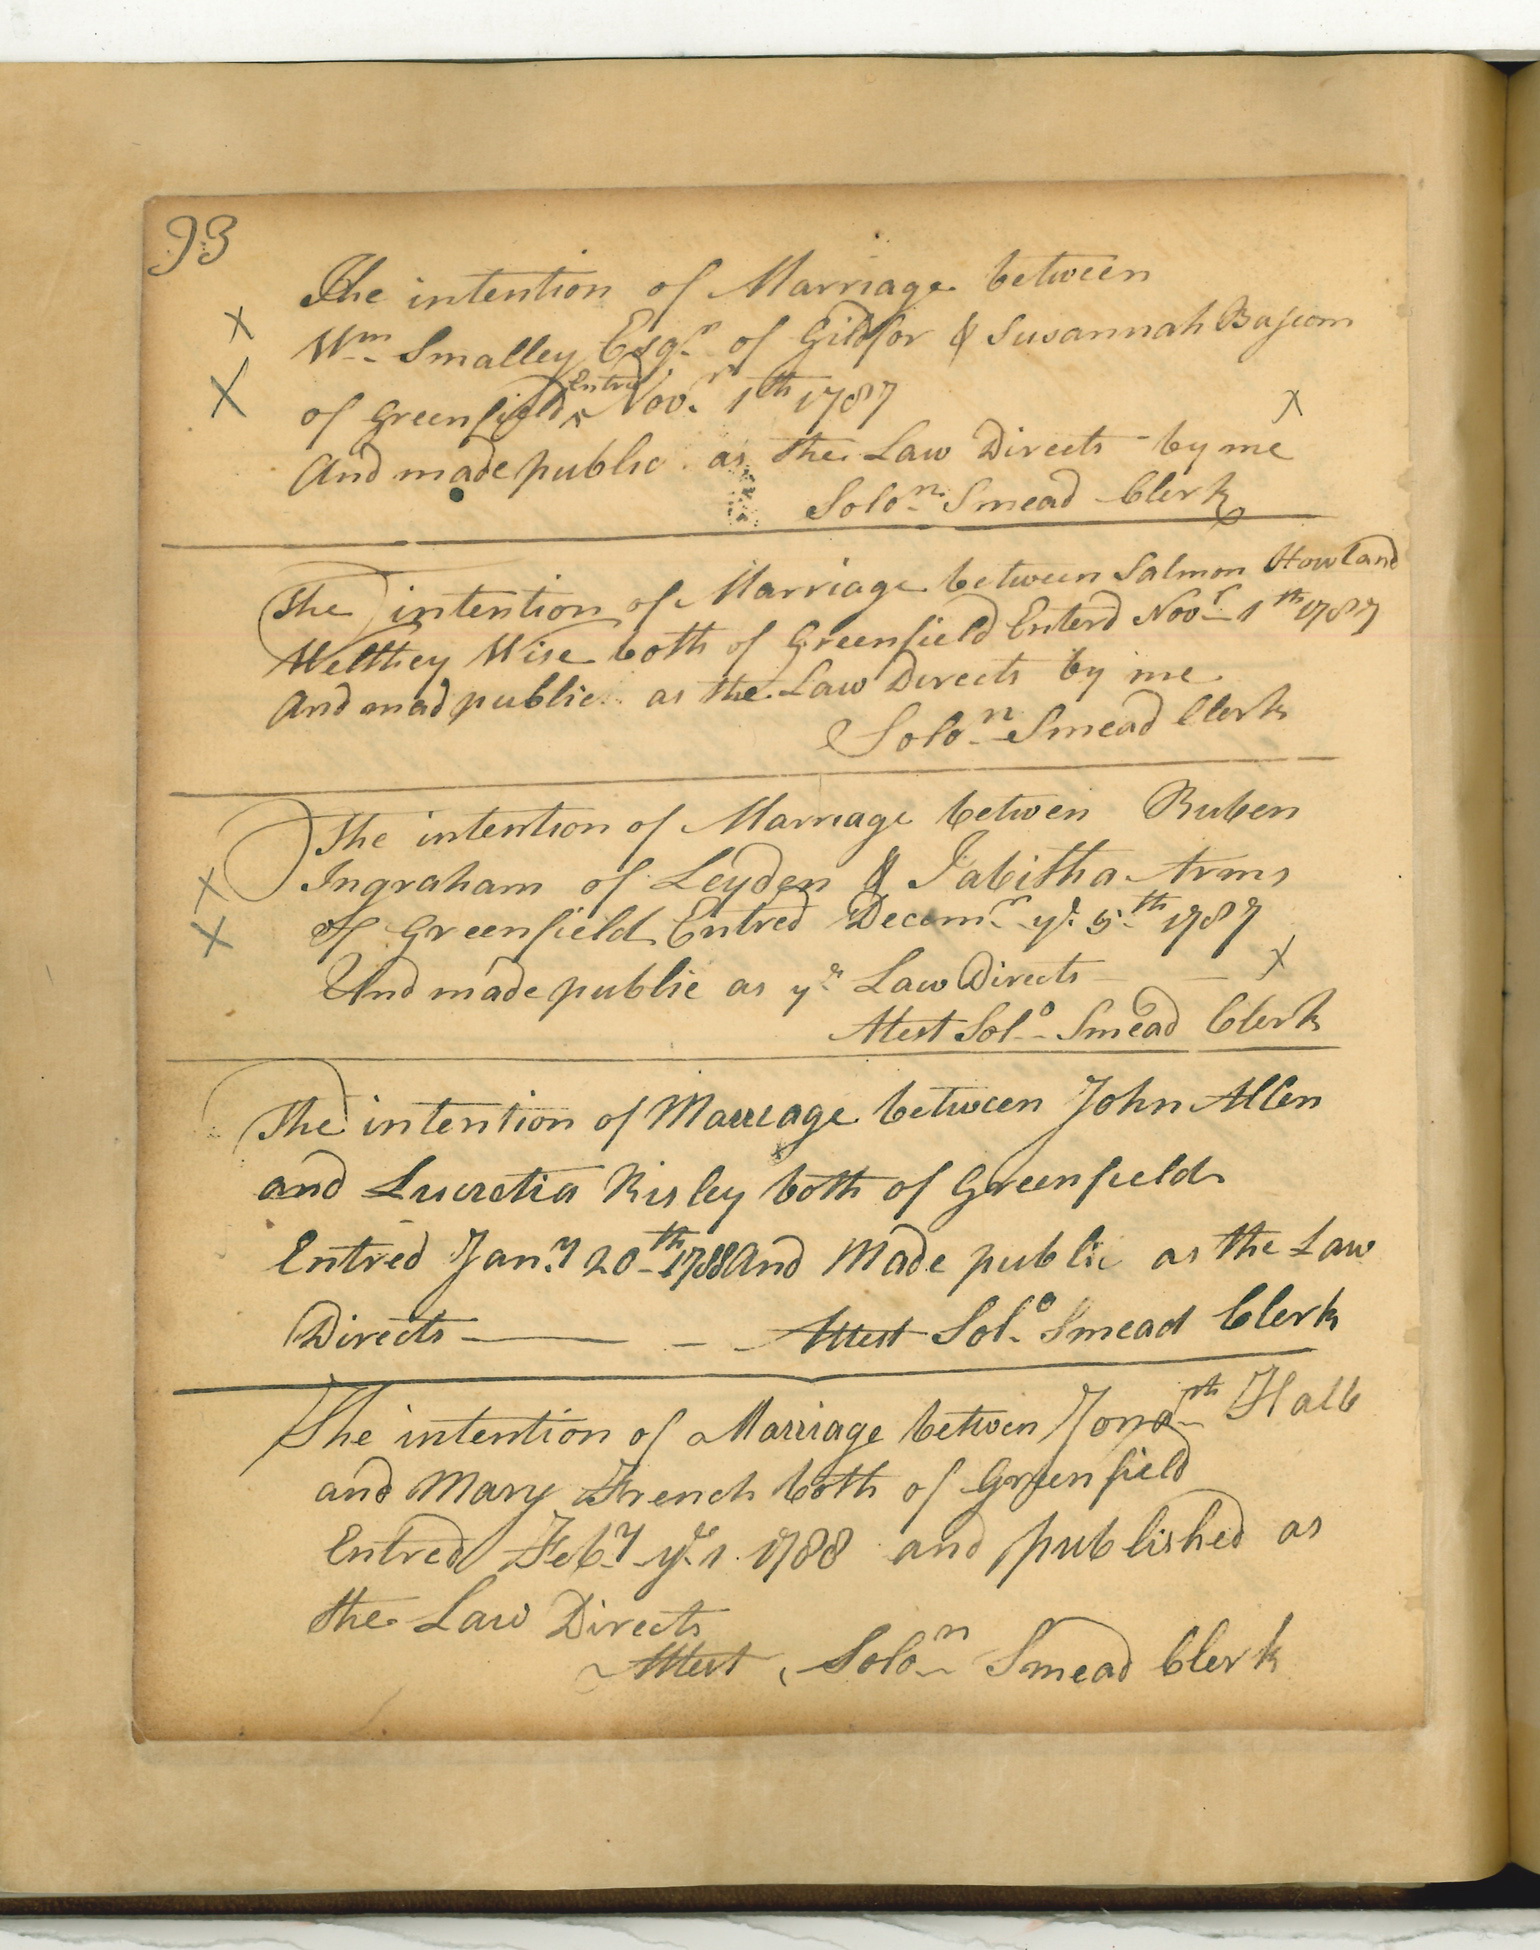 93
The intention of Marriage between
Wm Smalley Esqr of Gildfor & Susannah Bascom
of Greenfield Entred Novr 1th 1787
And made public as the Law Directs by me
Solon Smead Clerk
The intention of Marriage between Salmon Howland
Welthey Wise both of Greenfield Enterd Novr 1th 1787
And mad public as the Law Directs by me
Solon Smead Clerk
The intention of Marriage betwen Ruben
Ingraham of Leyden & Tabitha Arms
of Greenfield Entred Decemr ye 5th 1787
And made public as ye Law Directs
Attest Solo Smead Clerk
The intention of Marreage between John Allen
and Lucretia Risley both of Greenfield
Entred Jany 20th 1788 And Made public as the Law
Directs Attest Solo Smead Clerk
The intention of Marriage betwen Jonath Hall
and Mary French both of Greenfield
Entred Feby ye 1 1788 and published as
the Law Directs
Attest Solon Smead Clerk